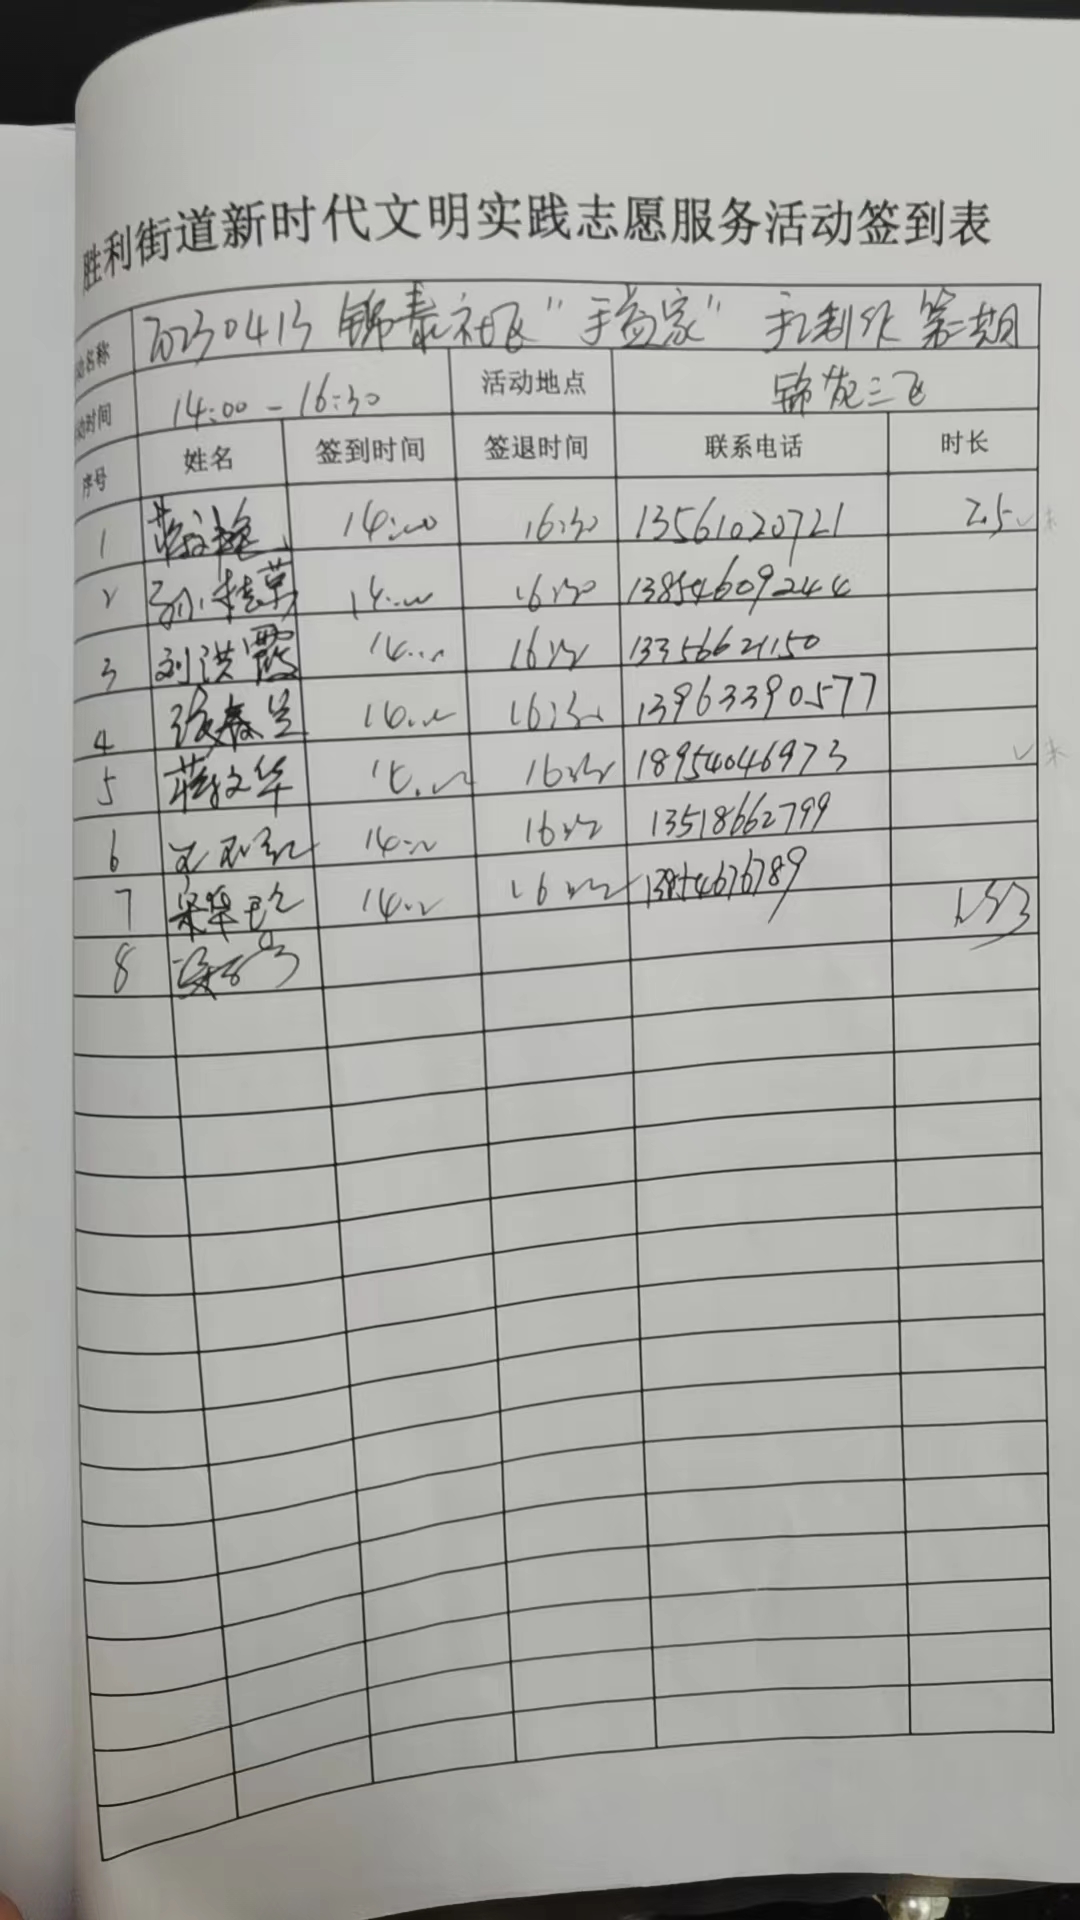 胜利街道新时代文明实践志愿服务活动签到表
动名称 20230413 锦泰社区"手益家" 手工制作 第二期
动时间 14:00-16:30 活动地点 锦龙三区
序号 姓名 签到时间 签退时间 联系电话 时长
1 蒋文艳 14:00 16:30 13561020721 2.5
2 孙桂英 14:00 16:30 13854609244
3 刘洪霞 14:00 16:30 13356621150
4 张春兰 14:00 16:30 13963390577
5 蒋文华 14:00 16:30 18954046973
6 14:00 16:30 13518662799
7 宋华 14:00 16:30 13854676789
8